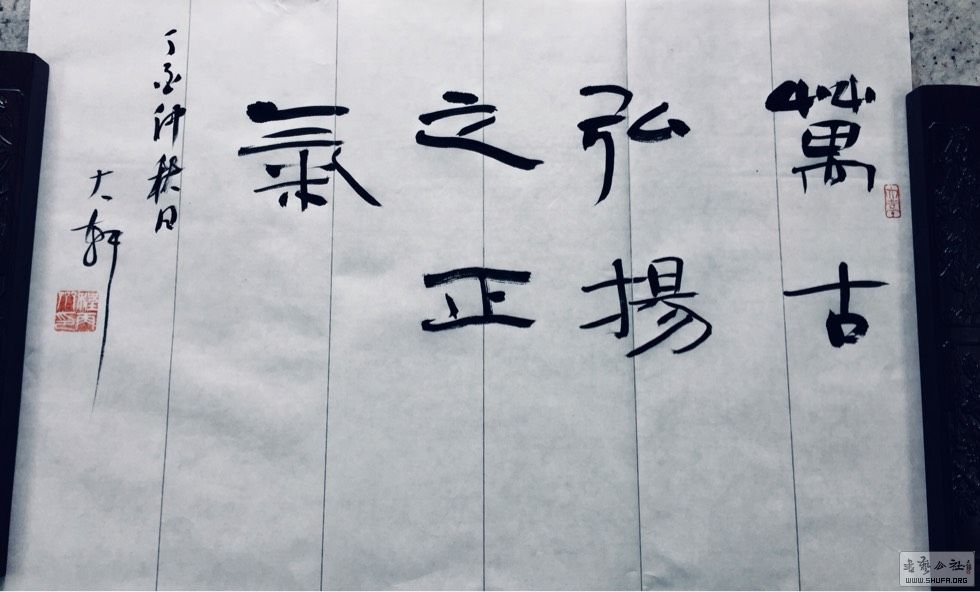 萬古
弘揚
之正
氣
丁酉仲秋日
大軒
書藝公社
WWW.SHUFA.ORG